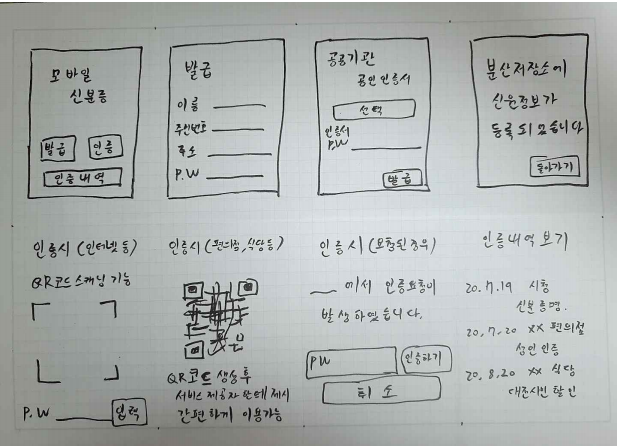 모바일
신분증
발급
인증
인증내역
발급
이름
주민번호
주소
P.W
공공기관
공인인증서
선택
인증서
P.W
발급
분산저장소에
신원정보가
등록되었습니다
돌아가기
인증시 (인터넷 등)
QR코드스캐닝 기능
P.W
입력
인증시 (편의점, 식당등)
QR코드 생성후
서비스 제공자한테 제시
간편하게 이용가능
인증시 (요청된경우)
에서 인증요청이
발생하였습니다.
PW
인증하기
취소
인증내역 보기
20.7.19 시청
신분증명.
20.7.20 XX 편의점
성인인증
20.8.20 XX 식당
대전시민 할인